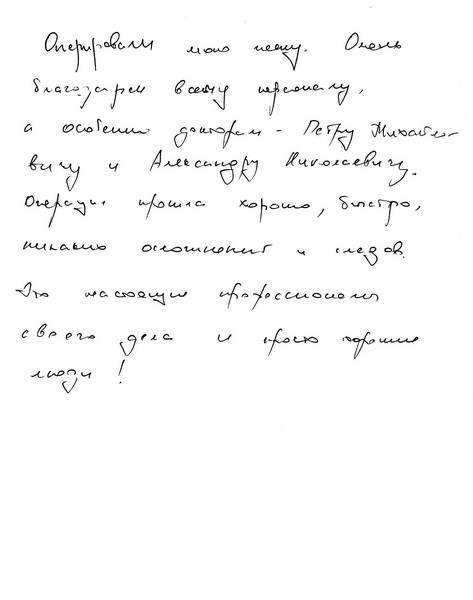 Оперировали мою тещу. Очень
благодарен всему персоналу,
а особенно докторам - Петру Михайло-
вичу и Александру Николаевичу.
Операция прошла хорошо, быстро,
никаких осложнений и следов.
Это настоящие профессионалы
своего дела и просто хорошие
люди!